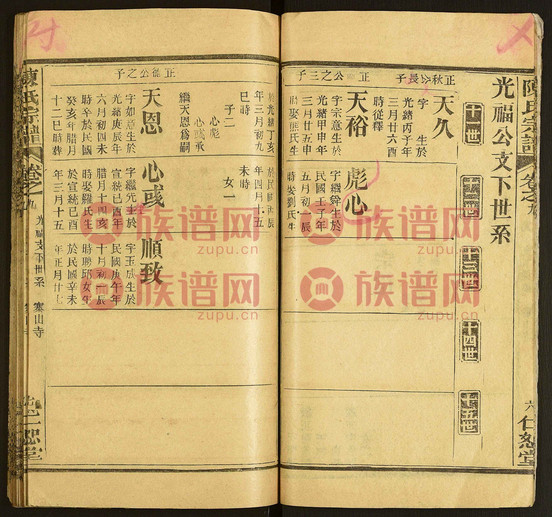 陳氏宗譜
卷之九
六
仁恕堂
光福公支下世系
十一世
十二世
十三世
十四世
十五世
正秋公長子
天久
字
生於
光緒丙子年
三月廿六酉
時從釋
正
公之三子
天裕
字宗意生於
光緒甲申年
三月廿五申
時娶熊氏生
彪心
字繼舜生於
民國壬子年
五月初一辰
時娶劉氏生
於光緒丁亥
年三月初九
巳時
子二
心彪
心彧承
繼天恩為嗣
年四月十五
未時
女一
正儒公之子
天恩
字如意生於
光緒庚辰年
六月初四未
時卒於民國
癸亥年腊月
十二巳時葬
心彧
字繼先生於
宣統己酉年
腊月十四亥
時娶羅氏生
於宣統己酉
年三月十五
順致
字玉成生於
民國庚午年
十月初一辰
時聘邱女生
於民國辛未
年正月廿七
陳氏宗譜
卷之九
光福支下世系
寒山寺
仁恕堂
族谱网
zupu.cn
族谱网
zupu.cn
族谱网
zupu.cn
族谱网
zupu.cn